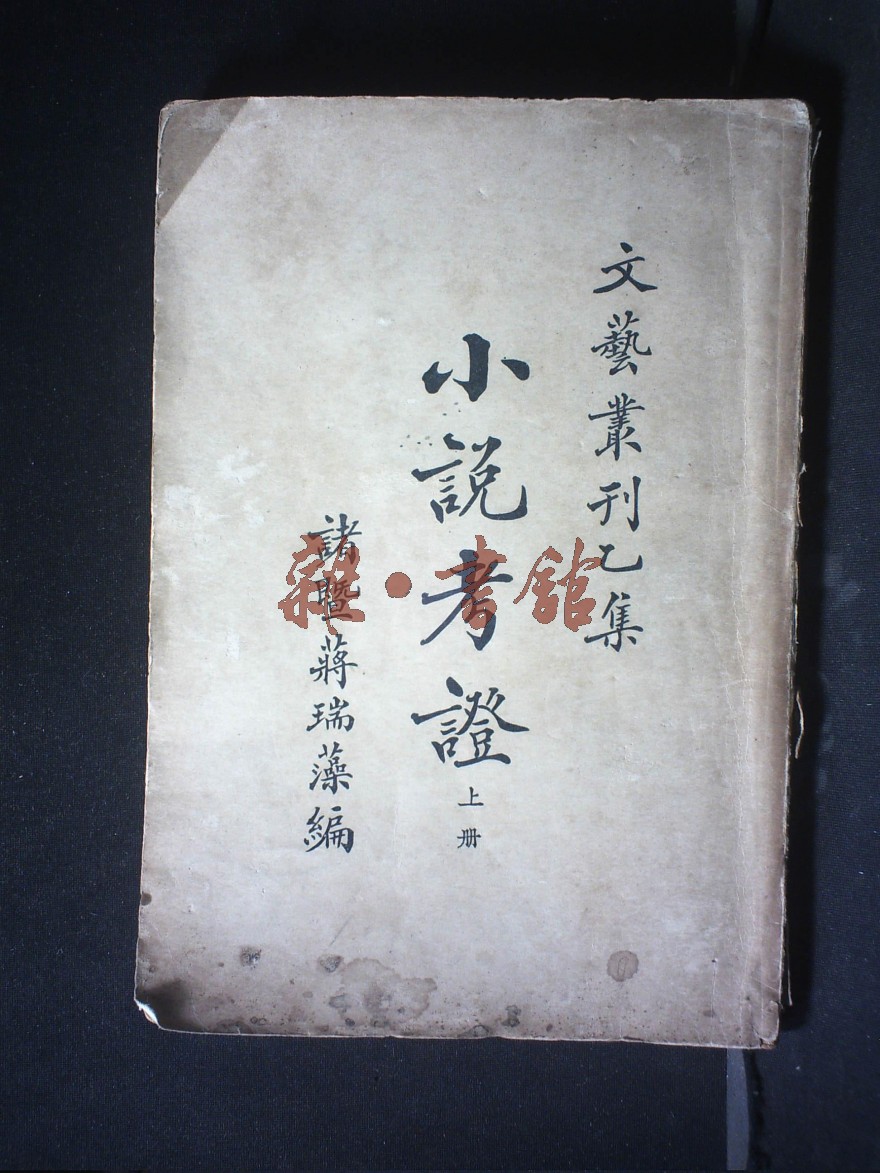 文藝叢刊乙集
小說考證
上册
諸暨蔣瑞藻編
雜·書館